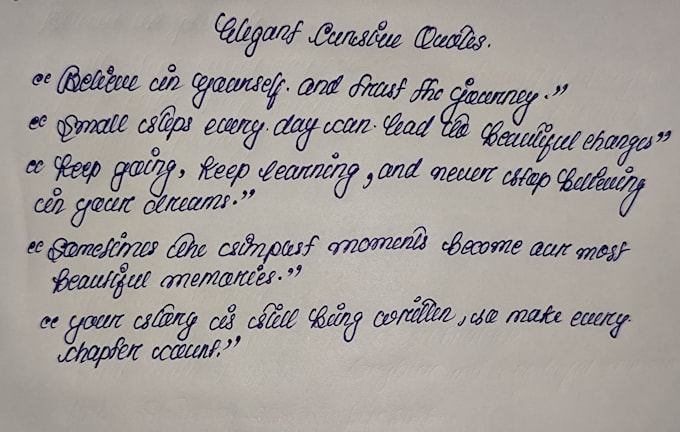 Elegant Cursive Quotes.
“Believe in yourself. and trust the journey.”
“Small steps every. day can. lead to beautiful changes”
“keep going, keep learning, and never stop believing
in your dreams.”
“Sometimes the simpest moments become our most
beautiful memories.”
“your story is still being written, so make every.
chapter count.”